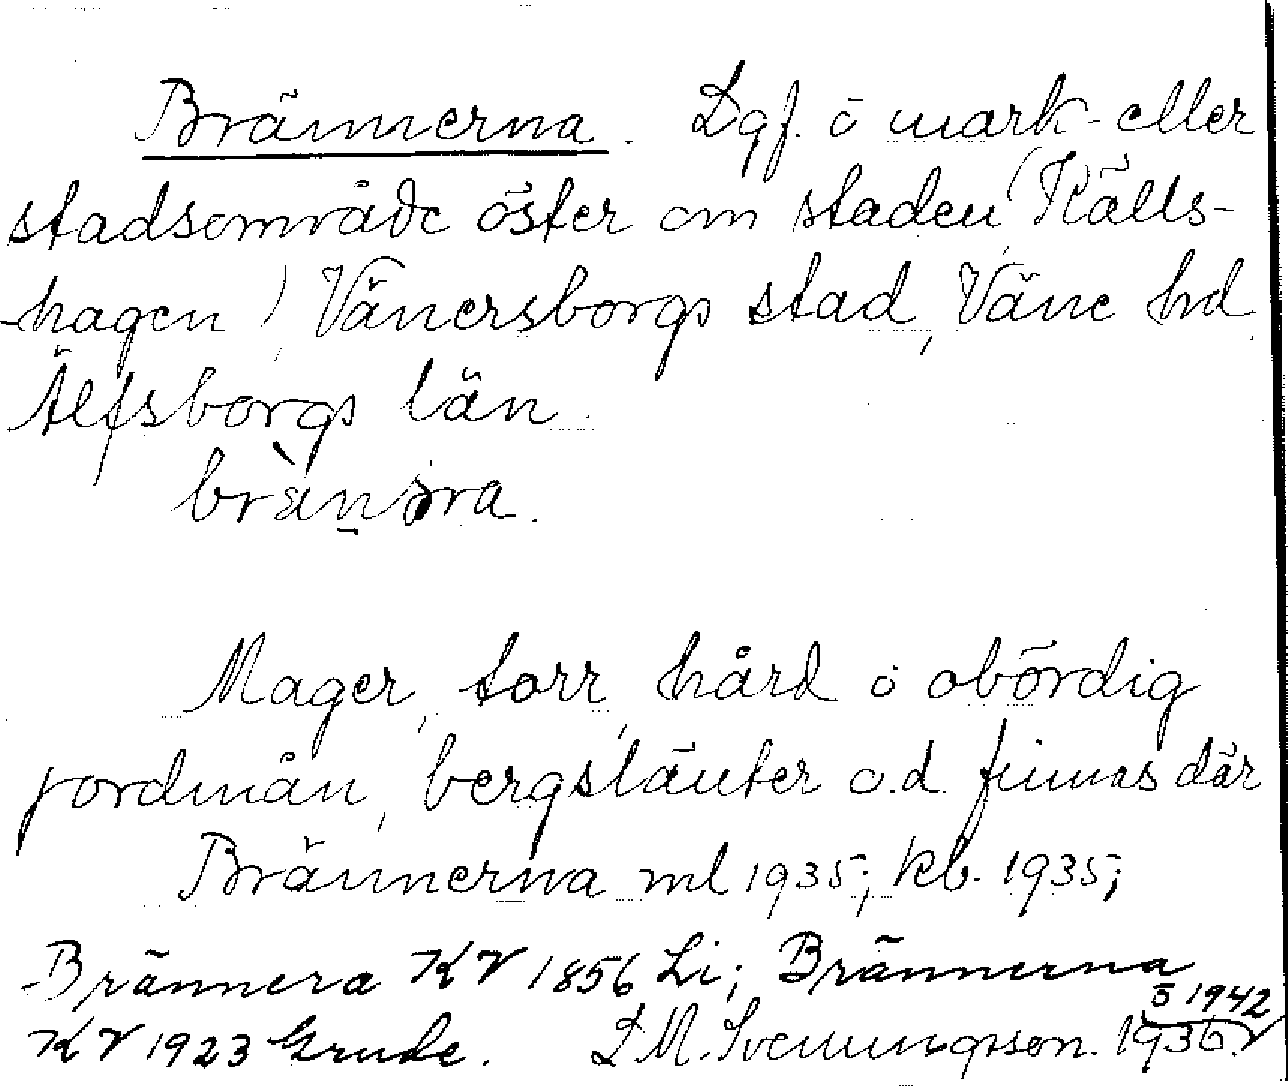 Brännerna. Lgf. o mark- eller
stadsområde öster om staden (Källs-
-hagen), Vänersborgs stad, Väne hd
Älfsborgs län.
Mager, torr, hård o obördig
jordmån, bergsläuter o.d. finnas där
Brännerna ml 1935; kb. 1935;
Brännera KV 1856 Li; Brännerna
5 1942
KV 1923 Grude. L M. Svenungsson. 1936.